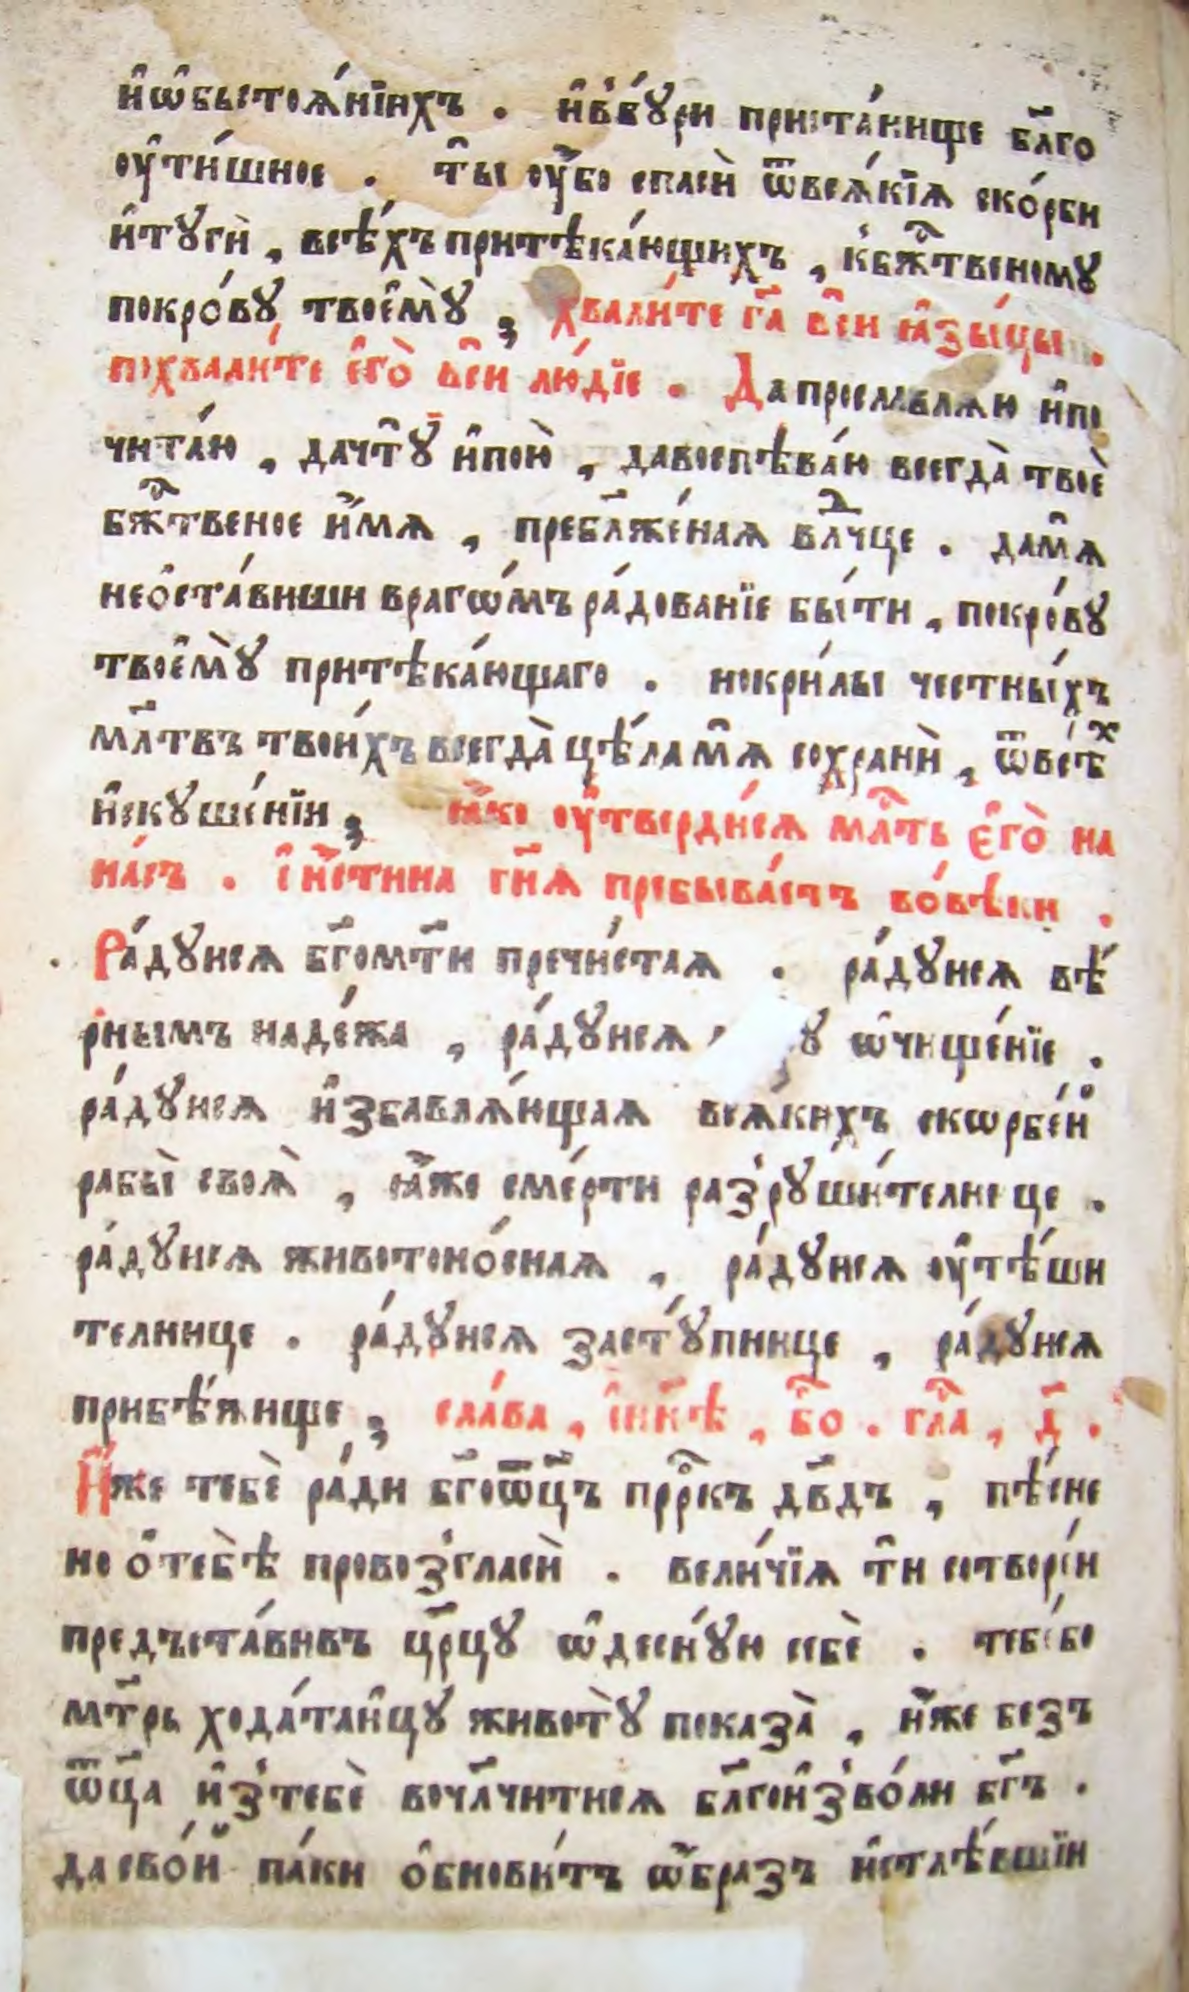 и҆ѡ҆бьстоѧ́нїихъ . и҆в̾бꙋ́ри приста́нище бл҃го
ᲂу҆ти́шное . ты̑ ᲂу҆̀бо спасѝ ѿвсѧ́кїѧ ско́рби
и҆тꙋгѝ , всѣ́хъ притѣка́ющихъ , к̾бж҃твеномꙋ
покро́вꙋ твоемꙋ̀ ; хвали́те гд҃а всѝ ꙗ҆зы́цы .
похвали́те є҆го̀ всѝ лю́дїе . Да прославлѧ́ю и҆по
чита́ю , дачтꙋ̀ и҆пою̀ , давоспѣва́ю всегда̀ твоѐ
бж҃твеное и҆́мѧ , пребл҃же́наѧ влⷣчце . дамѧ̀
неѡ҆ста́виши враго́мъ ра́дованїе бы́ти , покро́вꙋ
твоемꙋ̀ притѣка́ющаго . нокри́лы честны́хъ
мл҃твъ твои́хъ всегда̀ цѣ́ла мѧ̀ сохранѝ , ѿвсѣ́ⷯ
и҆скꙋше́нїи ; ꙗ҆́кѡ ᲂу҆тверди́сѧ мл҃ть є҆го̀ на
на́съ . и҆ и҆́стина гн҃ѧ пребыва́етъ во́вѣки .
Ра́дꙋисѧ бг҃омт҃и пречи́стаѧ . ра́дꙋисѧ вѣ́
рнымъ наде́жа , ра́дꙋисѧ ѡ҆чище́нїе .
ра́дꙋисѧ и҆збавлѧ́ющаѧ всѧ́кихъ скѡрбе́й
рабы̀ своѧ̀ , ꙗ҆́же сме́рти раз̾рꙋши́телнице .
ра́дꙋисѧ животоно́снаѧ , ра́дꙋисѧ ᲂу҆тѣ́ши
телнице . ра́дꙋисѧ застꙋ́пнице , ра́дꙋисѧ
прибѣ́жище ; сла́ва , и҆ нн҃ѣ , бо҃ . гла҃ , д҃ .
И҆́же тебѐ ра́ди бг҃оѿц҃ъ прⷪ҇ркъ дв҃дъ , пѣ́сне
но ѡ҆тебѣ̀ провоз̾гласѝ . вели́чїѧ тѝ сотвори́и
предъста́вивъ цр҃цꙋ ѡ҆деснꙋ́ю себѐ . тебе́бо
мт҃рь хода́таицꙋ животꙋ̀ показа̀ , и҆́же безъ
ѿц҃а и҆з̾тебѐ вочл҃читисѧ бл҃гоиз̾во́ли бг҃ъ .
да сво́й па́ки ѡ҆бнови́тъ ѡ҆́бразъ и҆стлѣ́вшїи